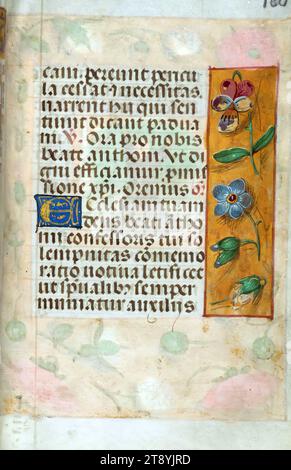 160
eam. pereunt pericu
la cessat & necessitas
narrent hii qui sen
tiunt dicant padua
ni. V. Ora pro nobis
beate anthoni. Vt di
gni efficiamur pmis
sione xpi. Oremus or
Ecclesiam tuam
deus beati atho
nii confessoris tui so
lempnitas comemo
ratio uotiua letificet
ut spualibus semper
muniatur auxiliis
alamy
Image ID: 2T8YJRD
www.alamy.com